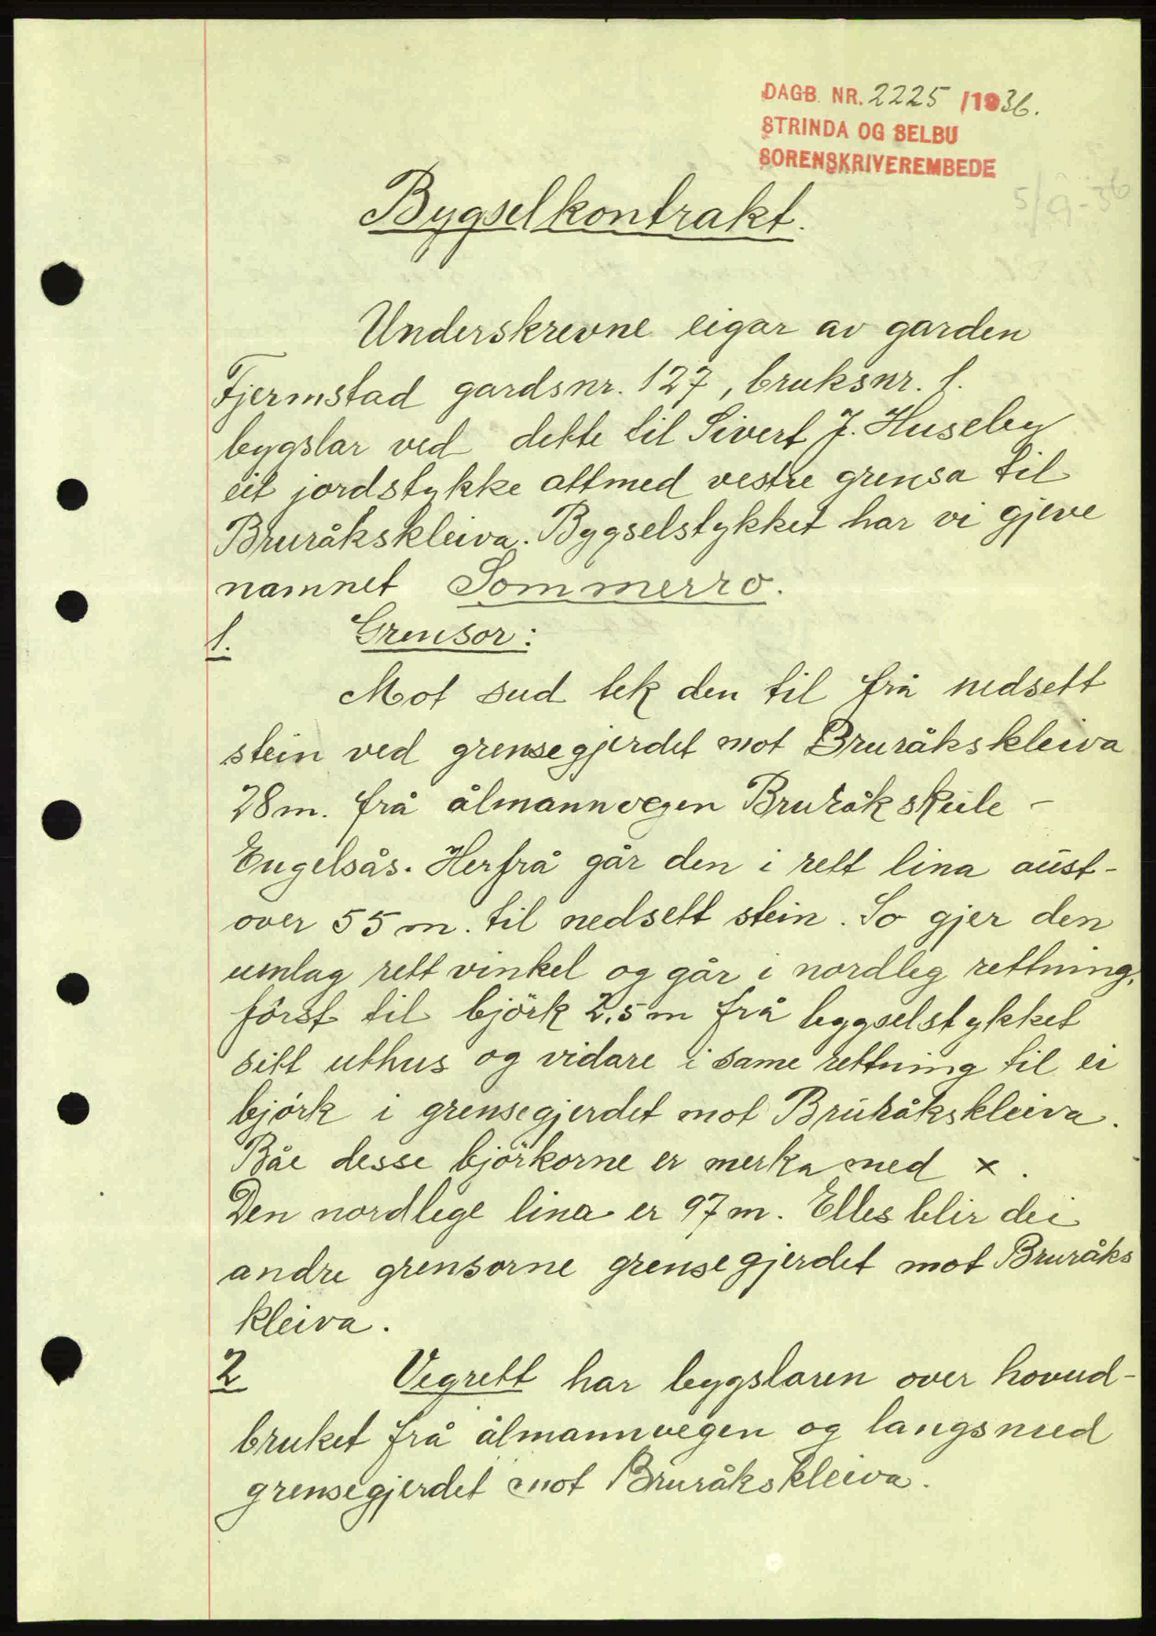 DAGB. NR. 2225 /1936.
STRINDA OG SELBU
SORENSKRIVEREMBEDE
5/9-36
Bygselkontrakt.
Underskrevne eigar av garden
Fjermstad gardsnr. 127, bruksnr. 1.
bygslar ved dette til Sivert J. Huseby
eit jordstykke attmed vestre grensa til
Bruråkskleiva. Bygselstykket har vi gjeve
namnet Sommerro.
1. Grensor:
Mot sud tek den til frå nedsett
stein ved grensegjerdet mot Bruråkskleiva
28 m. frå ålmannvegen Bruråk skule -
Engelsås. Herfrå går den i rett lina aust-
over 55 m. til nedsett stein. So gjer den
umlag rett vinkel og går i nordleg rettning,
först til björk 2,5 m frå bygselstykket
sitt uthus og vidare i same rettning til ei
björk i grensegjerdet mot Bruråkskleiva.
Båe desse björkorne er merka med x.
Den nordlege lina er 97 m. Elles blir dei
andre grensorne grensegjerdet mot Bruråks
kleiva.
2 Vegrett har bygslaren over hovud-
bruket frå ålmannvegen og langsmed
grensegjerdet mot Bruråkskleiva.